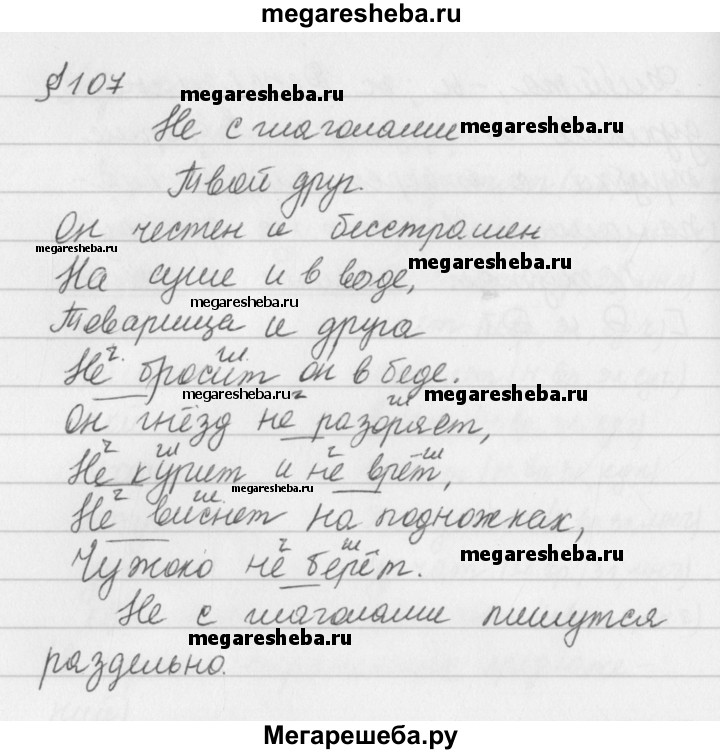 megaresheba.ru
§107
megaresheba.ru
Не с глаголами
megaresheba.ru
Твой друг.
Он честен и бесстрашен
megaresheba.ru
На суше и в воде,
megaresheba.ru
megaresheba.ru
Товарища и друга
ч. гл.
Не бросит он в беде.
megaresheba.ru
megaresheba.ru
ч гл
Он гнёзд не разоряет,
ч гл ч гл
Не курит и не врёт,
megaresheba.ru
ч гл
Не виснет на подножках,
ч гл
megaresheba.ru
Чужоко не берёт.
Не с глаголами пишутся
megaresheba.ru
раздельно.
Мегарешеба.ру